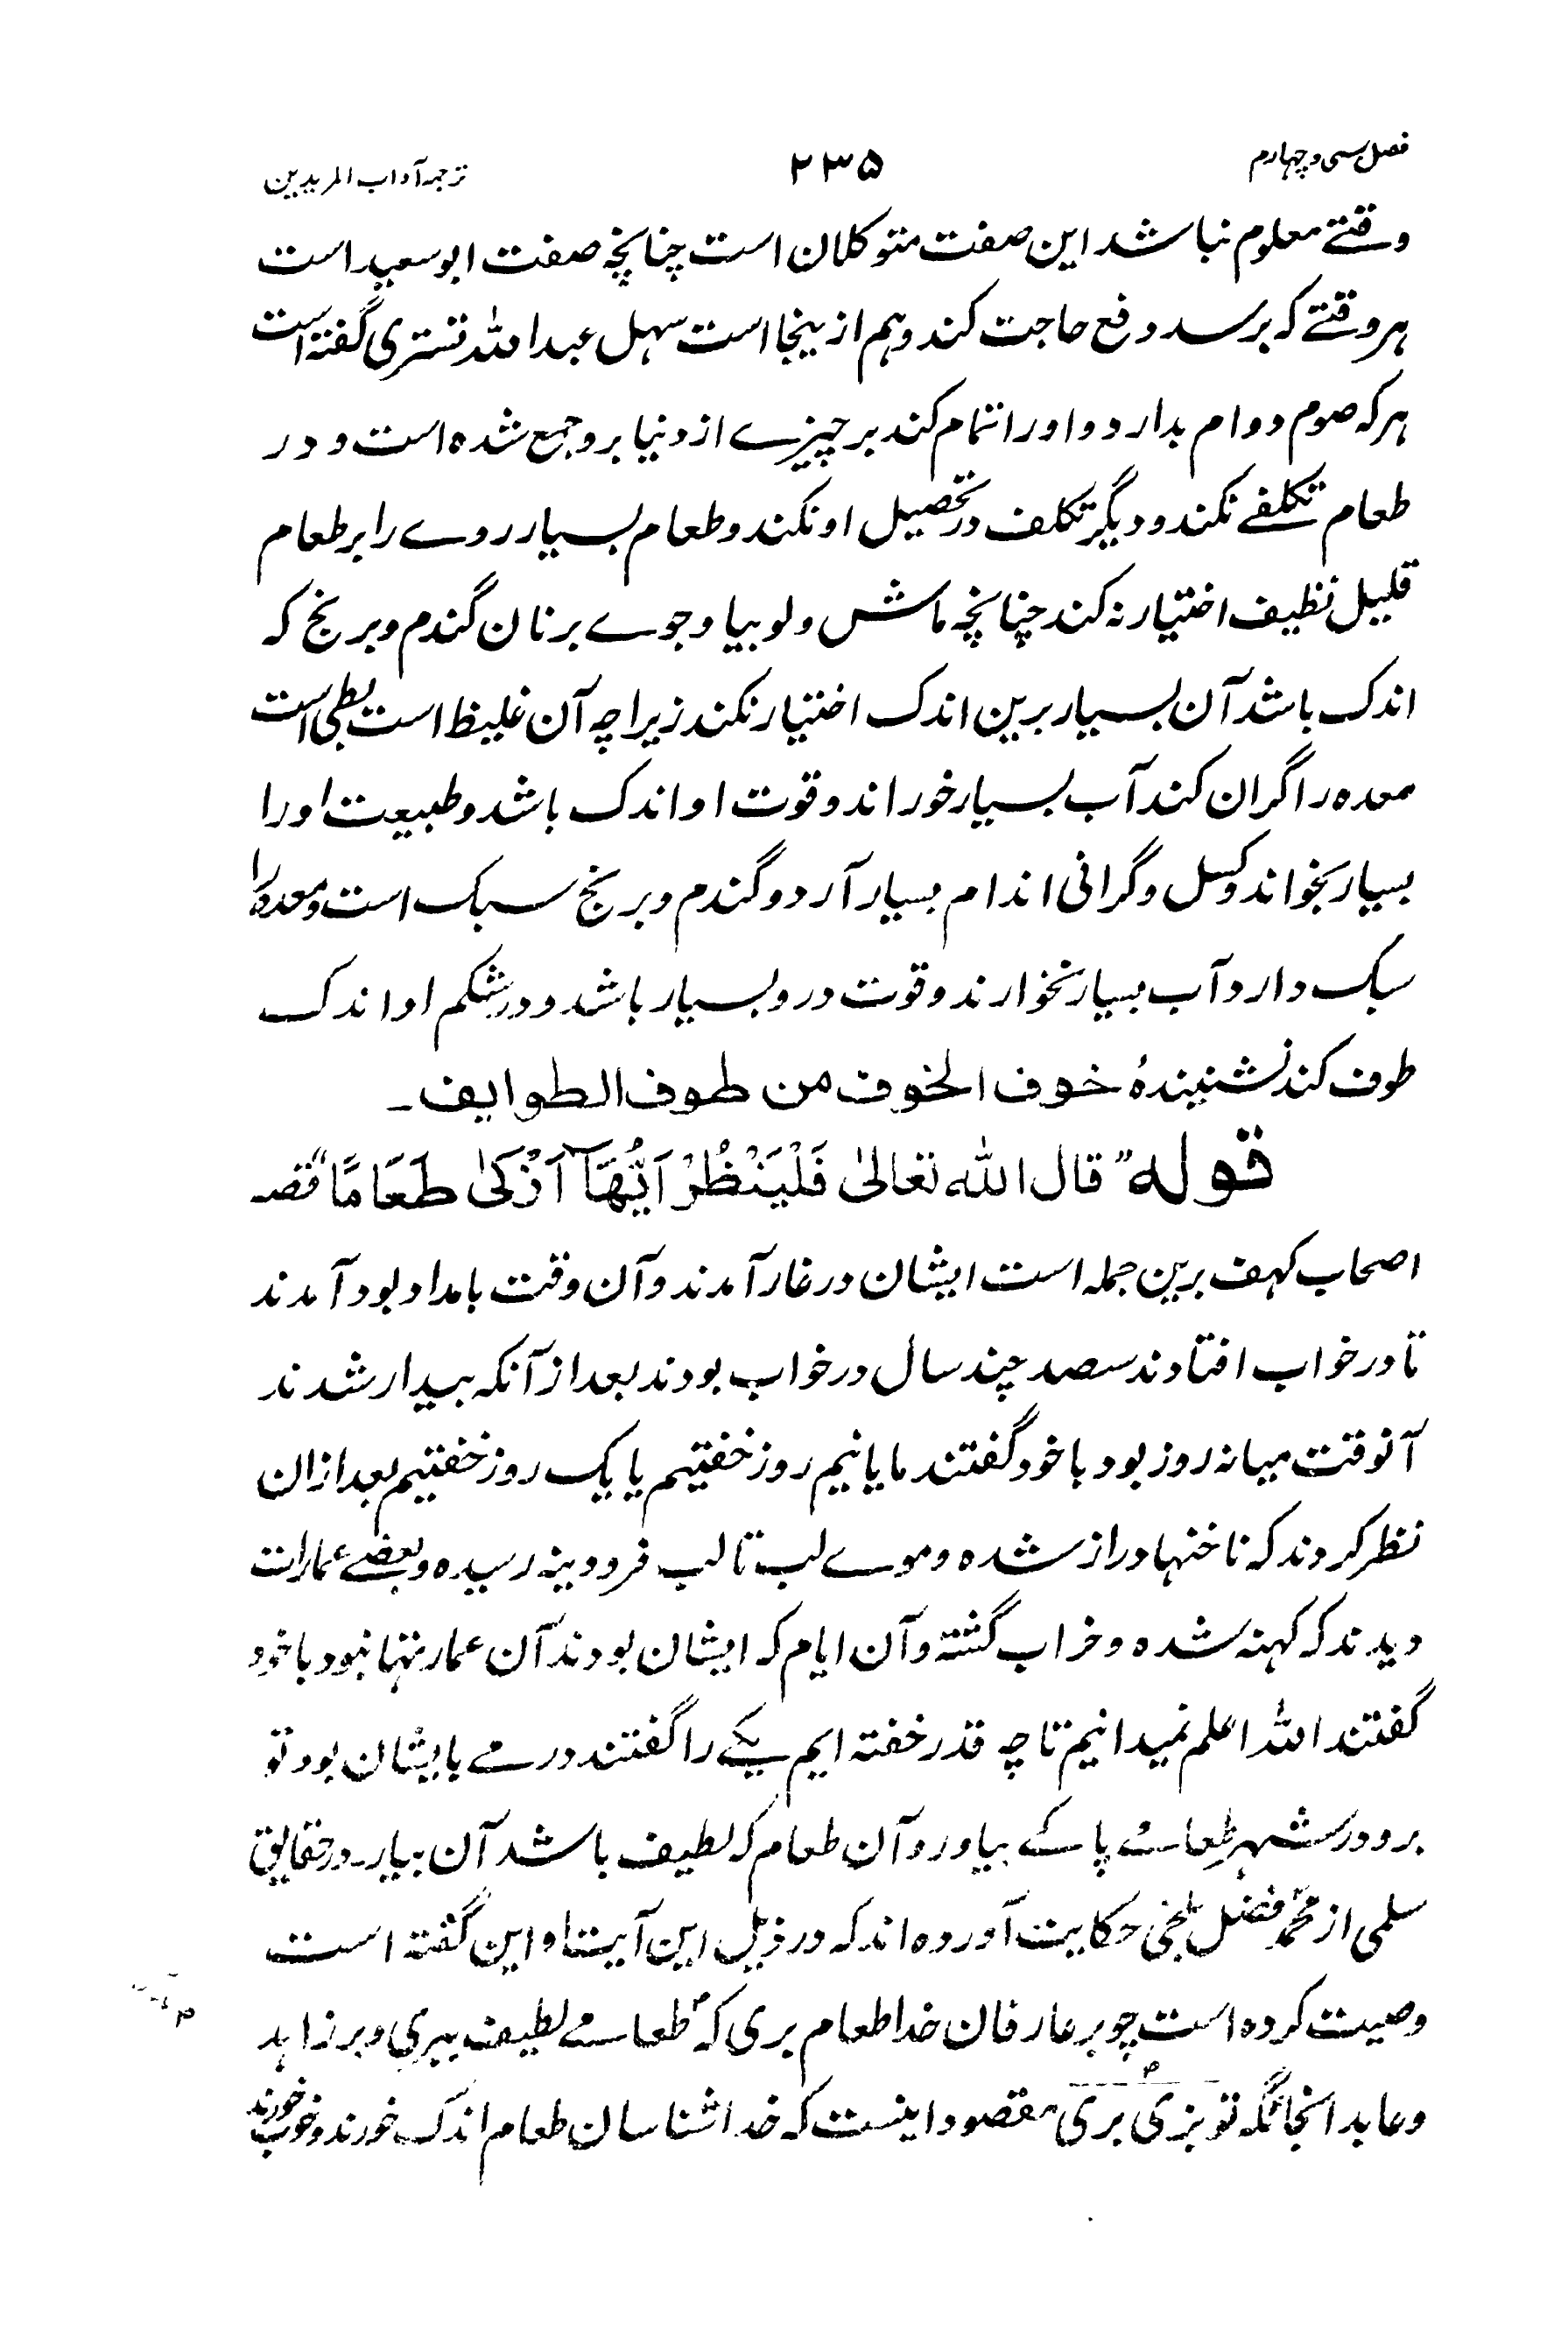 فصل سی و چهارم ۲۳۵ ترجمه آداب المریدین
وقتے معلوم نباشد این صفت متوکلان است چنانچه صفت ابو سعید است
هر وقتے که برسد دفع حاجت کند و هم ازینجا است سهل عبد الله تستری گفته است
هر که صوم دوام بدارد و او را تمام کند بر چیزے از دنیا برو جمع شده است و در
طعام تکلفے نکند و دیگر تکلف در تحصیل او نکند و طعام بسیار روے را بر طعام
قلیل نظیف اختیار نه کند چنانچه ماش و لوبیا و جوے بر نان گندم و برنج که
اندک باشد آن بسیار برین اندک اختیار نکند زیرا چه آن غلیظ است بطی است
معده را گران کند آب بسیار خوراند و قوت او اندک باشد و طبیعت او را
بسیار بخواند و کسل و گرانی اندام بسیار آرد و گندم و برنج سبک است و معده را
سبک دارد آب بسیار نخوارند و قوت درو بسیار باشد و در شکم او اندک
طوف کند نشنیندهٔ خوف الخوف من طوف الطوایف ـ
قوله "قال الله تعالیٰ فَلْیَنْظُرْ اَیُّهَآ اَزْکیٰ طَعَامًا" قصه
اصحاب کهف برین جمله است ایشان در غار آمدند و آن وقت بامداد بود آمدند
تا در خواب افتادند سصد چند سال در خواب بودند بعد از آنکه بیدار شدند
آنوقت میانه روز بود با خود گفتند ما یا نیم روز خفتیم یا یک روز خفتیم بعد ازان
نظر کردند که ناخنها دراز شده و موے لب تا لب فرودینه رسیده و بعضے عمارات
دیدند که کهنه شده و خراب گشته و آن ایام که ایشان بودند آن عمارتها نبود با خود
گفتند الله اعلم نمیدانیم تا چه قدر خفته ایم یکے را گفتند درمے با یشان بود تو
برو در شهر طعامے پاکے بیاور و آن طعام که لطیف باشد آن بیار ـ در حقایق
سلمی از محمد فضل بلخی حکایت آورده اند که در ذیل این آیت او این گفته است
وصیت کرده است چو بر عارفان خدا طعام بری که طعامے لطیف ببری و بر زاهد
و عابد انجانگه تو بزی بری مقصود اینست که خدا شناسان طعام اندک خورند و خوب خورند